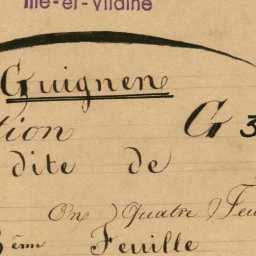 Ille-et-Vilaine
Guignen
tion G 3
dite de
en Quatre Feu
3ème Feuille